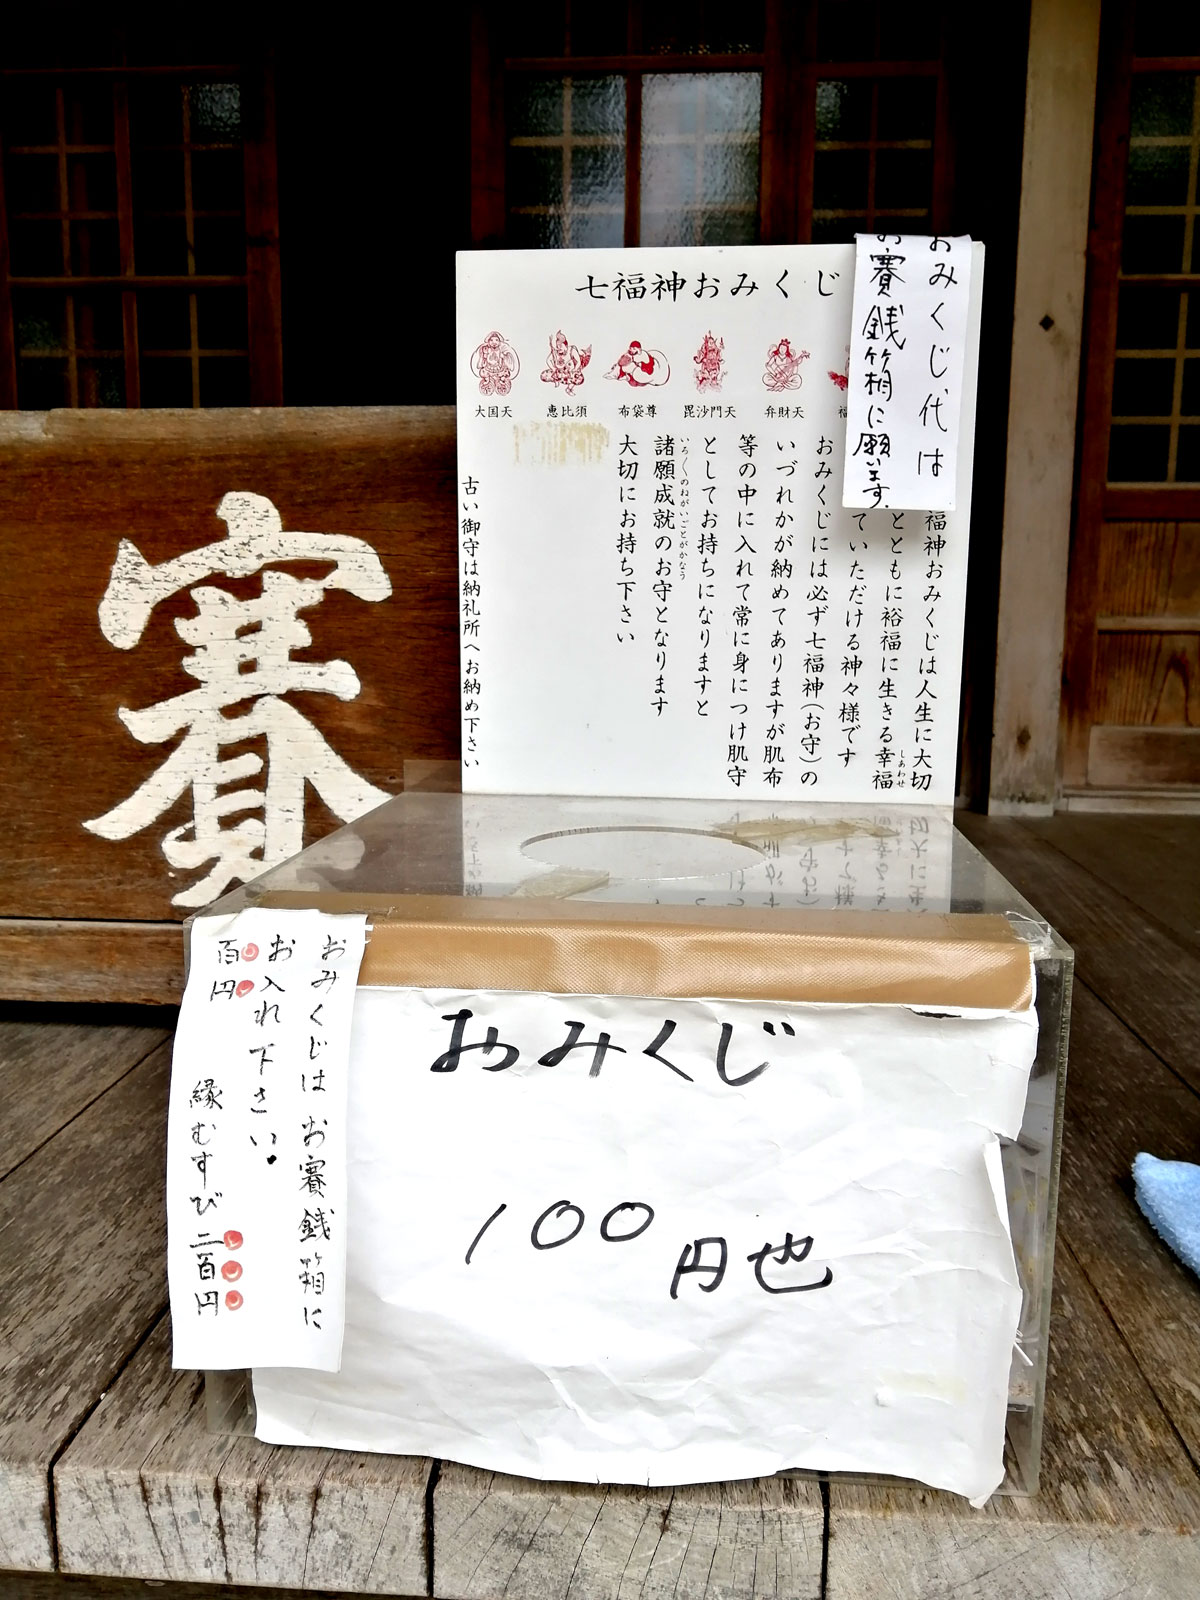 七福神おみくじ
大国天
恵比須
布袋尊
毘沙門天
弁財天
福
福神おみくじは人生に大切
とともに裕福に生きる幸福
しあわせ
ていただける神々様です
おみくじには必ず七福神(お守)の
いづれかが納めてありますが肌布
等の中に入れて常に身につけ肌守
としてお持ちになりますと
諸願成就のお守となります
いろ〳〵のねがいごとがかなう
大切にお持ち下さい
古い御守は納礼所へお納め下さい
おみくじ代は
お賽銭箱に願います.
賽
おみくじは お賽銭箱に
お入れ下さい.
百円
縁むすび 二百円
おみくじ
100円也